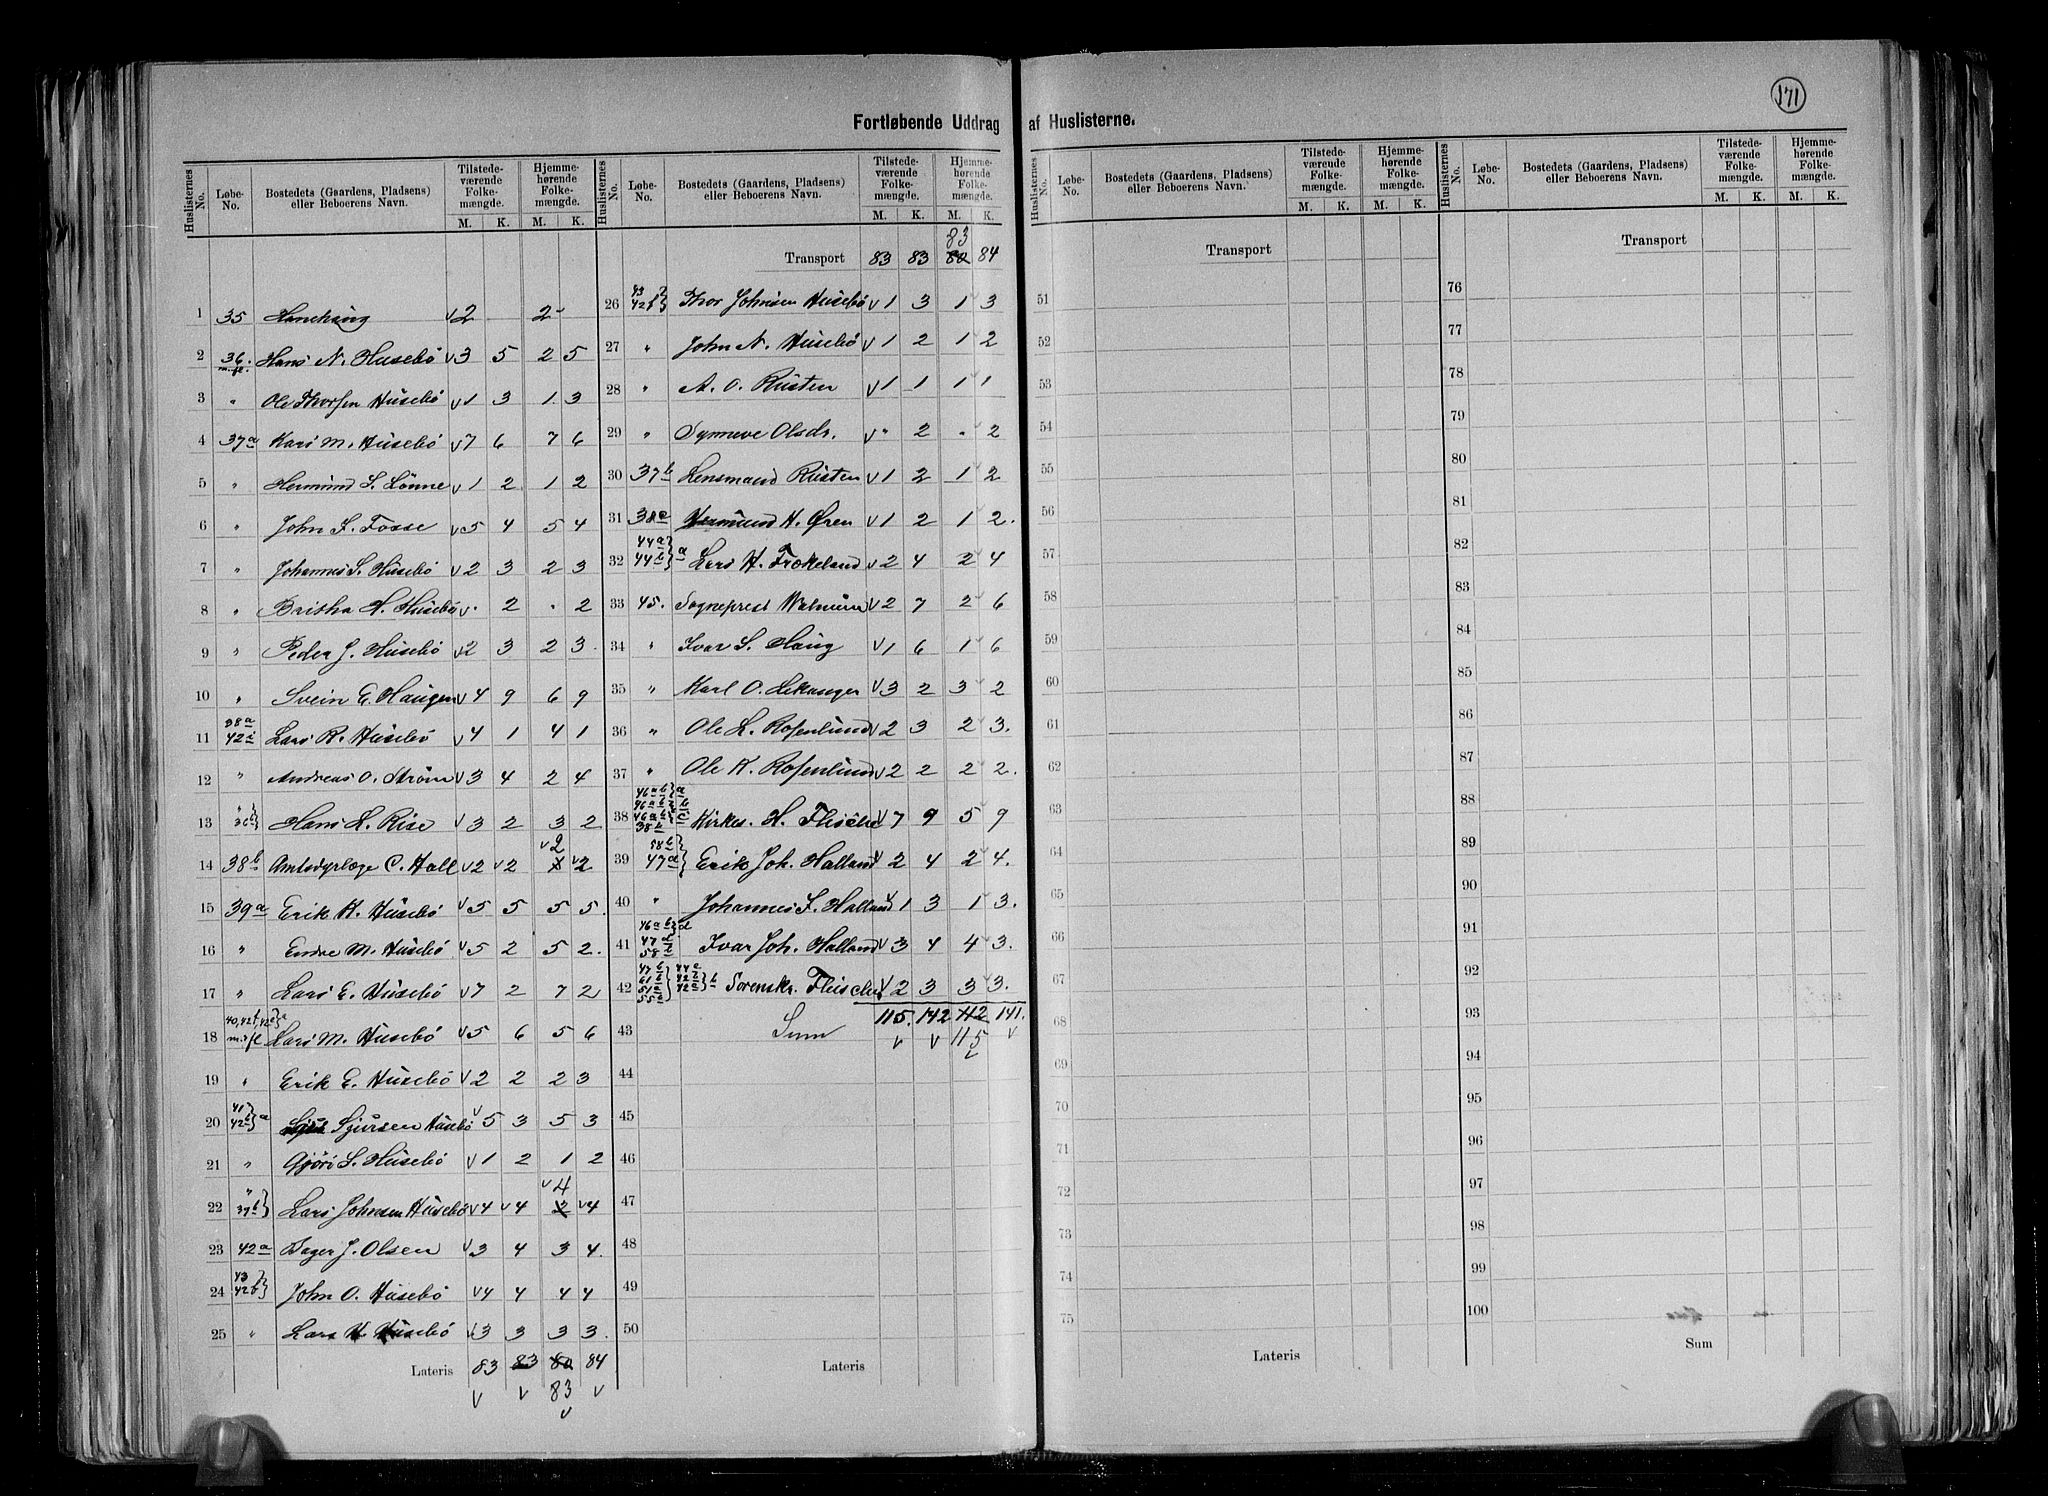 171
Fortløbende Uddrag af Huslisterne.
Huslisternes No. Løbe-No. Bostedets (Gaardens, Pladsens) eller Beboerens Navn. Tilstedeværende Folkemængde. M. K. Hjemmehørende Folkemængde. M. K.
1 35 2 2
2 36 m.fl. Hans N. Husebö 3 5 2 5
3 " Ole Thorsen Husebö 1 3 1 3
4 37a Kari M. Husebö 7 6 7 6
5 " Hermund S. Lönne 1 2 1 2
6 " John S. Fosse 5 4 5 4
7 " Johannes S. Husebö 2 3 2 3
8 " Britha H. Husebö " 2 " 2
9 " Peder J. Husebö 2 3 2 3
10 " Svein E. Haugen 4 9 6 9
11 38a 42i Lars R. Husebö 4 1 4 1
12 " Andreas O. Ström 3 4 2 4
13 " 36b Hans L. Rise 3 2 3 2
14 38b Amtsdyrlæge C. Hall 2 2 2 2
15 39a Erik K. Husebö 5 5 5 5
16 " Endre M. Husebö 5 2 5 2
17 " Lars E. Husebö 7 2 7 2
18 40, 42f, 42e a m.fl Lars M. Husebö 5 6 5 6
19 " Erik E. Husebö 2 2 2 3
20 41 42b a Sjursen Husebö 5 3 5 3
21 " Gjöri S. Husebö 1 2 1 2
22 " 37b Lars Johnsen Husebö 4 4 2 4 4
23 42a Bager J. Olsen 3 4 3 4
24 43 42b John O. Husebö 4 4 4 4
25 " Lars H. Husebö 3 3 3 3
Lateris 83 83 80 84
83
Transport 83 83 80 83 84
26 43 42b Thor Johnsen Husebö 1 3 1 3
27 " John N. Husebö 1 2 1 2
28 " A. O. Rusten 1 1 1 1
29 " Synneve Olsdr. " 2 " 2
30 37b Lensmand Rusten 1 2 1 2
31 38a Hermund H. Øren 1 2 1 2
32 44a 44b a Lars H. Frökeland 2 4 2 4
33 45. Sogneprest 2 7 2 6
34 " Ivar S. Haug 1 6 1 6
35 " Karl O. Lekanger 3 2 3 2
36 " Ole L. Rosenlund 2 3 2 3
37 " Ole K. Rosenlund 2 2 2 2
38 Kirkes. H. Fleischer 7 9 5 9
39 58b 47a Erik Joh. Halland 2 4 2 4
40 " Johannes S. Halland 1 3 1 3
41 Ivar Joh. Halland 3 4 4 3
42 Sorenskr. Fleischer 2 3 3 3
43 Sum 115 142 112 141
115
44
45
46
47
48
49
50
Lateris
Huslisternes No. Løbe-No. Bostedets (Gaardens, Pladsens) eller Beboerens Navn. Tilstedeværende Folkemængde. M. K. Hjemmehørende Folkemængde. M. K.
Transport
51
52
53
54
55
56
57
58
59
60
61
62
63
64
65
66
67
68
69
70
71
72
73
74
75
Lateris
Huslisternes No. Løbe-No. Bostedets (Gaardens, Pladsens) eller Beboerens Navn. Tilstedeværende Folkemængde. M. K. Hjemmehørende Folkemængde. M. K.
Transport
76
77
78
79
80
81
82
83
84
85
86
87
88
89
90
91
92
93
94
95
96
97
98
99
100
Sum